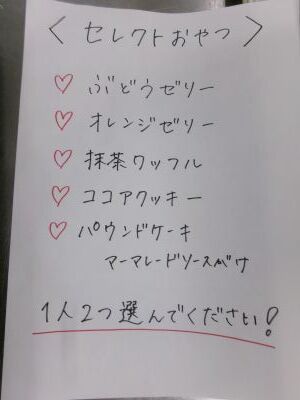 〈 セレクトおやつ 〉
♡ ぶどうゼリー
♡ オレンジゼリー
♡ 抹茶ワッフル
♡ ココアクッキー
♡ パウンドケーキ
マーマレードソースがけ
1人2つ選んでください!